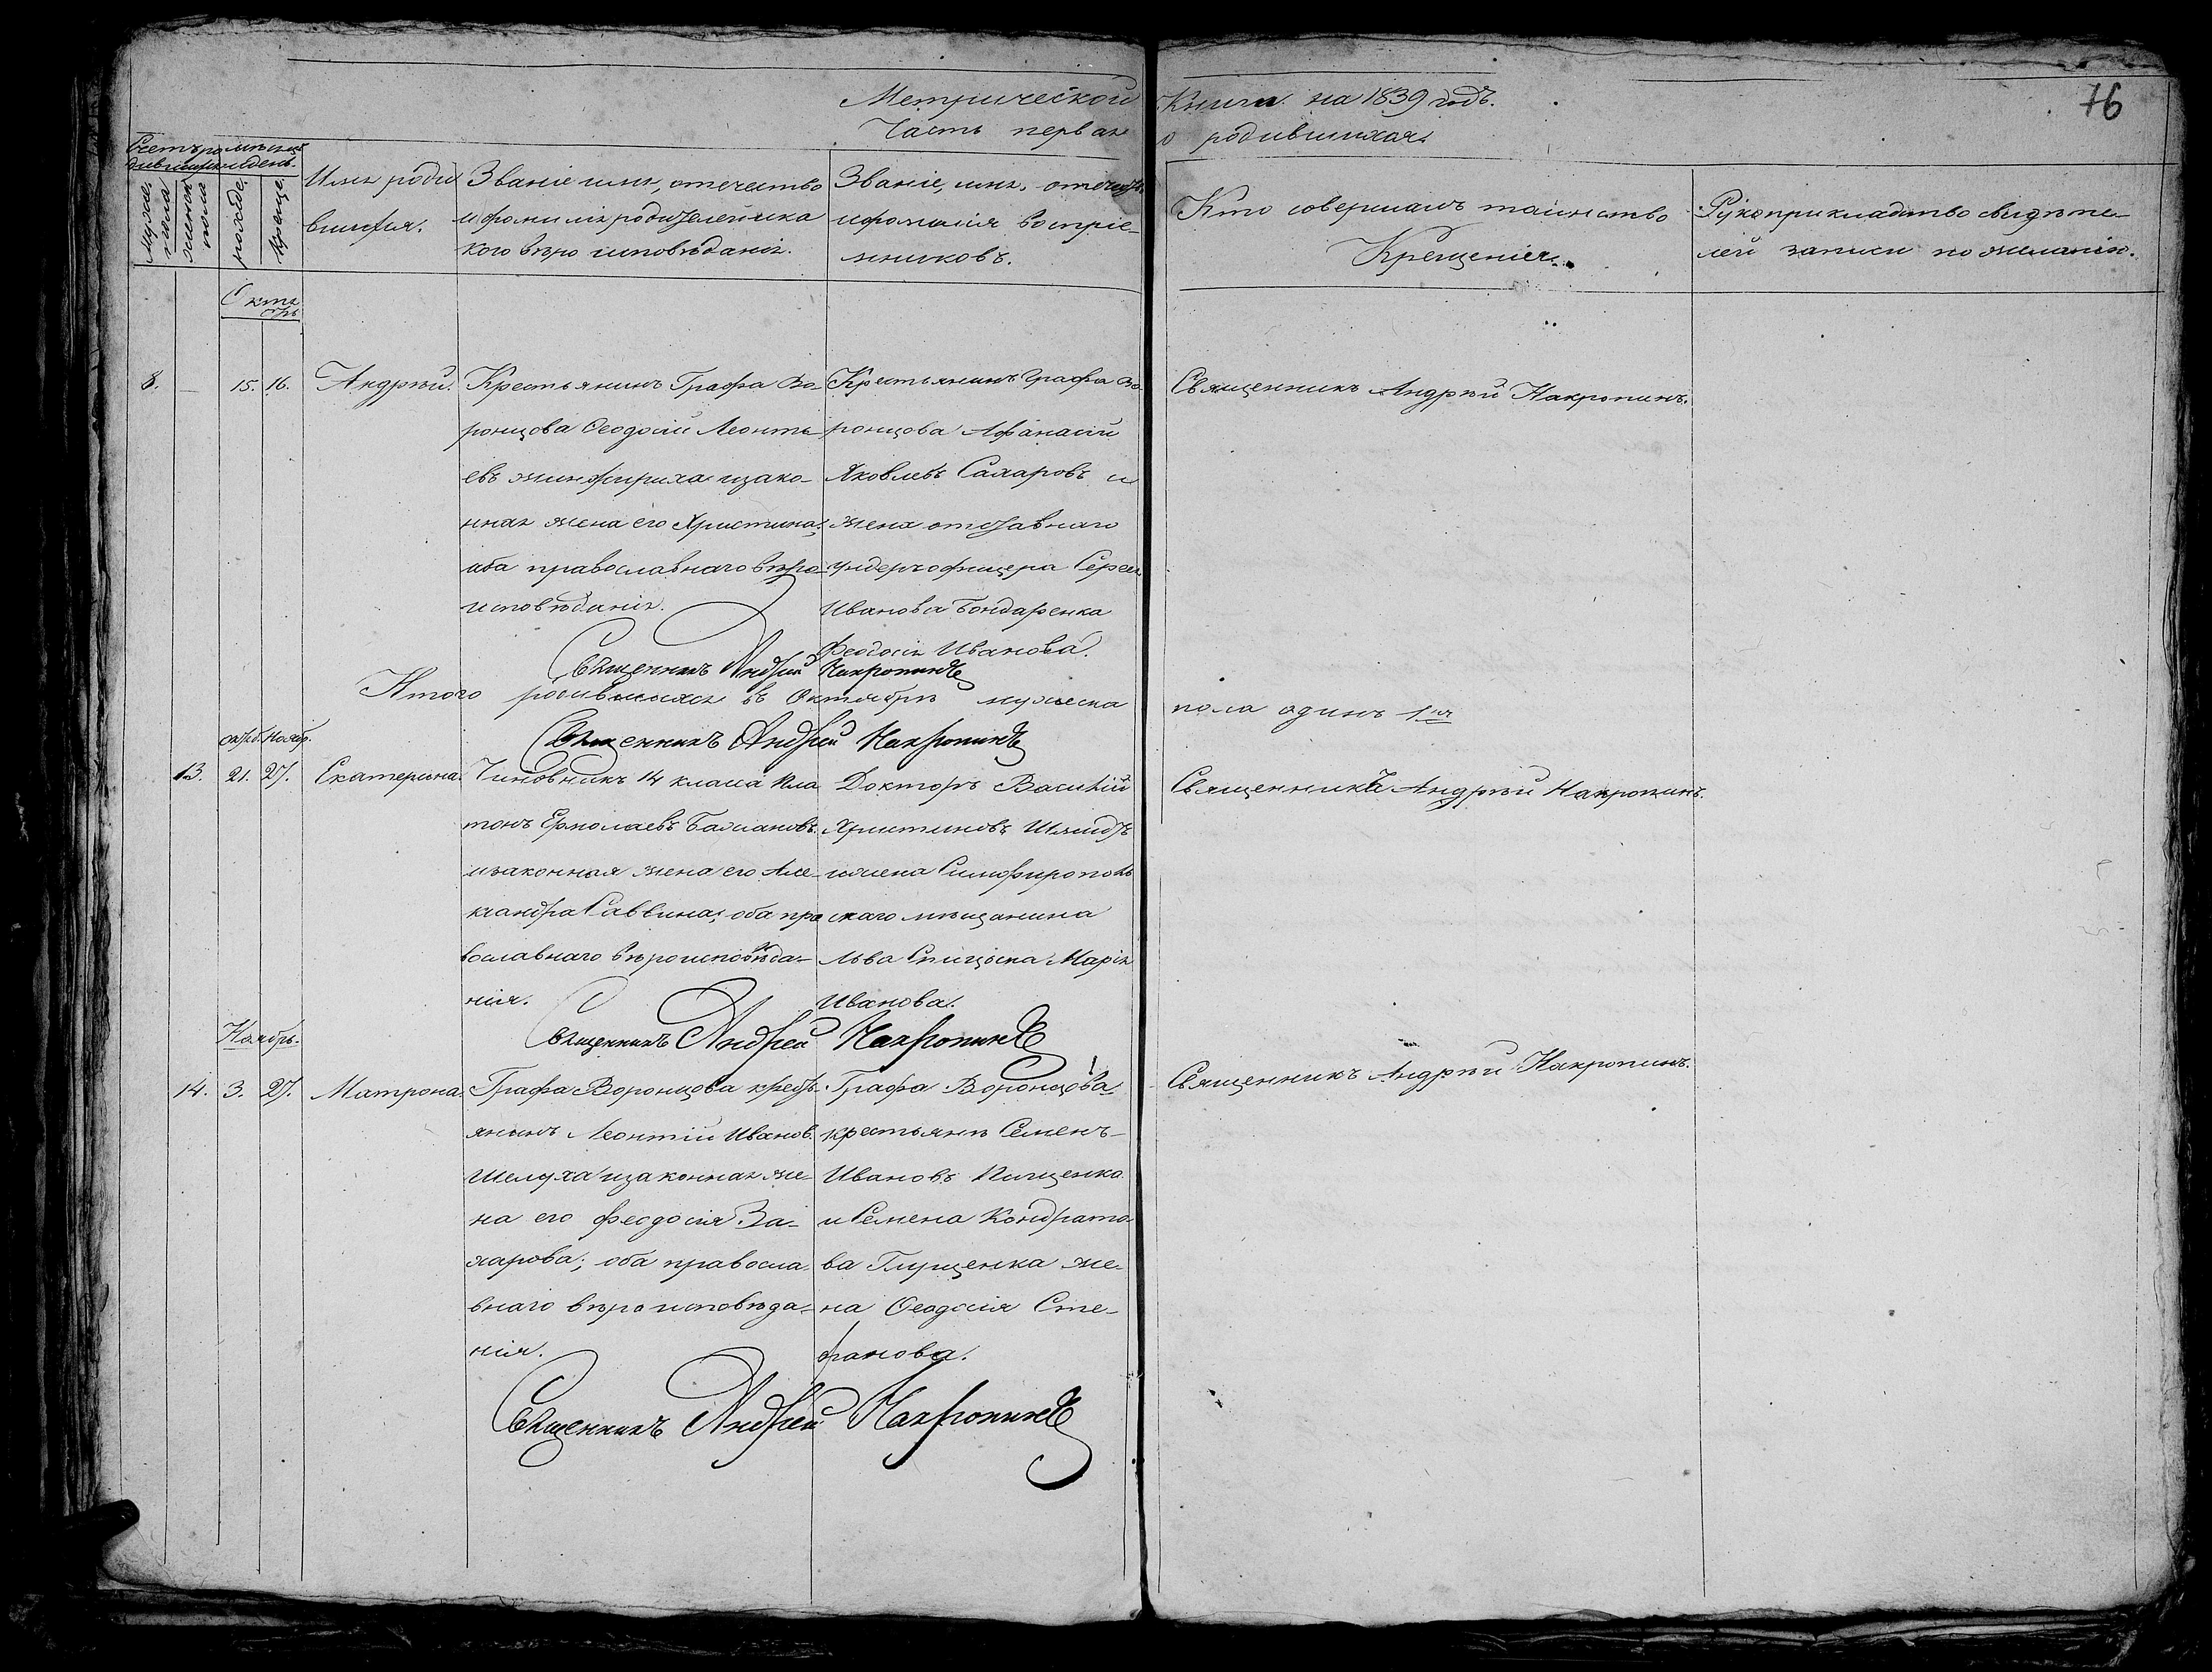 Метрической Книги на 1839 годъ.
76
Часть первая о родившихся.
Счетъ родившихся
мѣсяцъ и день.
Мужес. пола
женск. пола
рожде.
креще.
Имя роди
вшихся.
Званіе имя, отечество
и фамилія родителей и ка
кого вѣро исповѣданія.
Званіе, имя, отечеств.
и фамилія воспріе-
мниковъ.
Кто совершалъ таинство
Крещенія.
Рукоприкладство свидѣте-
лей записи по желанію.
Октя
брь
8. — 15. 16. Андрѣй.
Крестьянинъ Графа Во-
ронцова Ѳеодосій Леонть-
евъ
и зако-
нная жена его Христина,
оба православнаго вѣро-
исповѣданія.
Крестьянинъ Графа Во-
ронцова Афанасій
Яковлевъ Сахаровъ и
жена отставнаго
ундеръ офицера Сергея
Иванова Бондаренка
Феодосія Иванова.
Священникъ Андрѣй Накропинъ.
Священникъ Андрей Накропинъ
Итого родившихся въ Октябрѣ мужеска пола одинъ 1
Священникъ Андрей Накропинъ
Октяб. Ноябр.
13. 21. 27. Екатерина.
Чиновникъ 14 класса Пла
тонъ Ермолаевъ Баснановъ
и законная жена его Але-
ксандра Саввина, оба пра
вославнаго вѣроисповѣда-
нія.
Докторъ Василій
Христиновъ Шмидтъ
и жена Симферополь
скаго мѣщанина
Льва Спицына Марія
Иванова.
Священникъ Андрѣй Накропинъ.
Священникъ Андрей Накропинъ
Ноябрь.
14. 3. 27. Матрона.
Графа Воронцова крест-
янинъ Леонтій Иванов.
Шелуха и законная же-
на его Феодосія За-
харова; оба правосла-
внаго вѣро исповѣда-
нія.
Графа Воронцова
крестьянѣ Семенъ
Ивановъ Пищенко
и Семена Кондрато-
ва Глущенка же-
на Ѳеодосія Сте-
фанова.
Священникъ Андрѣй Накропинъ.
Священникъ Андрей Накропинъ